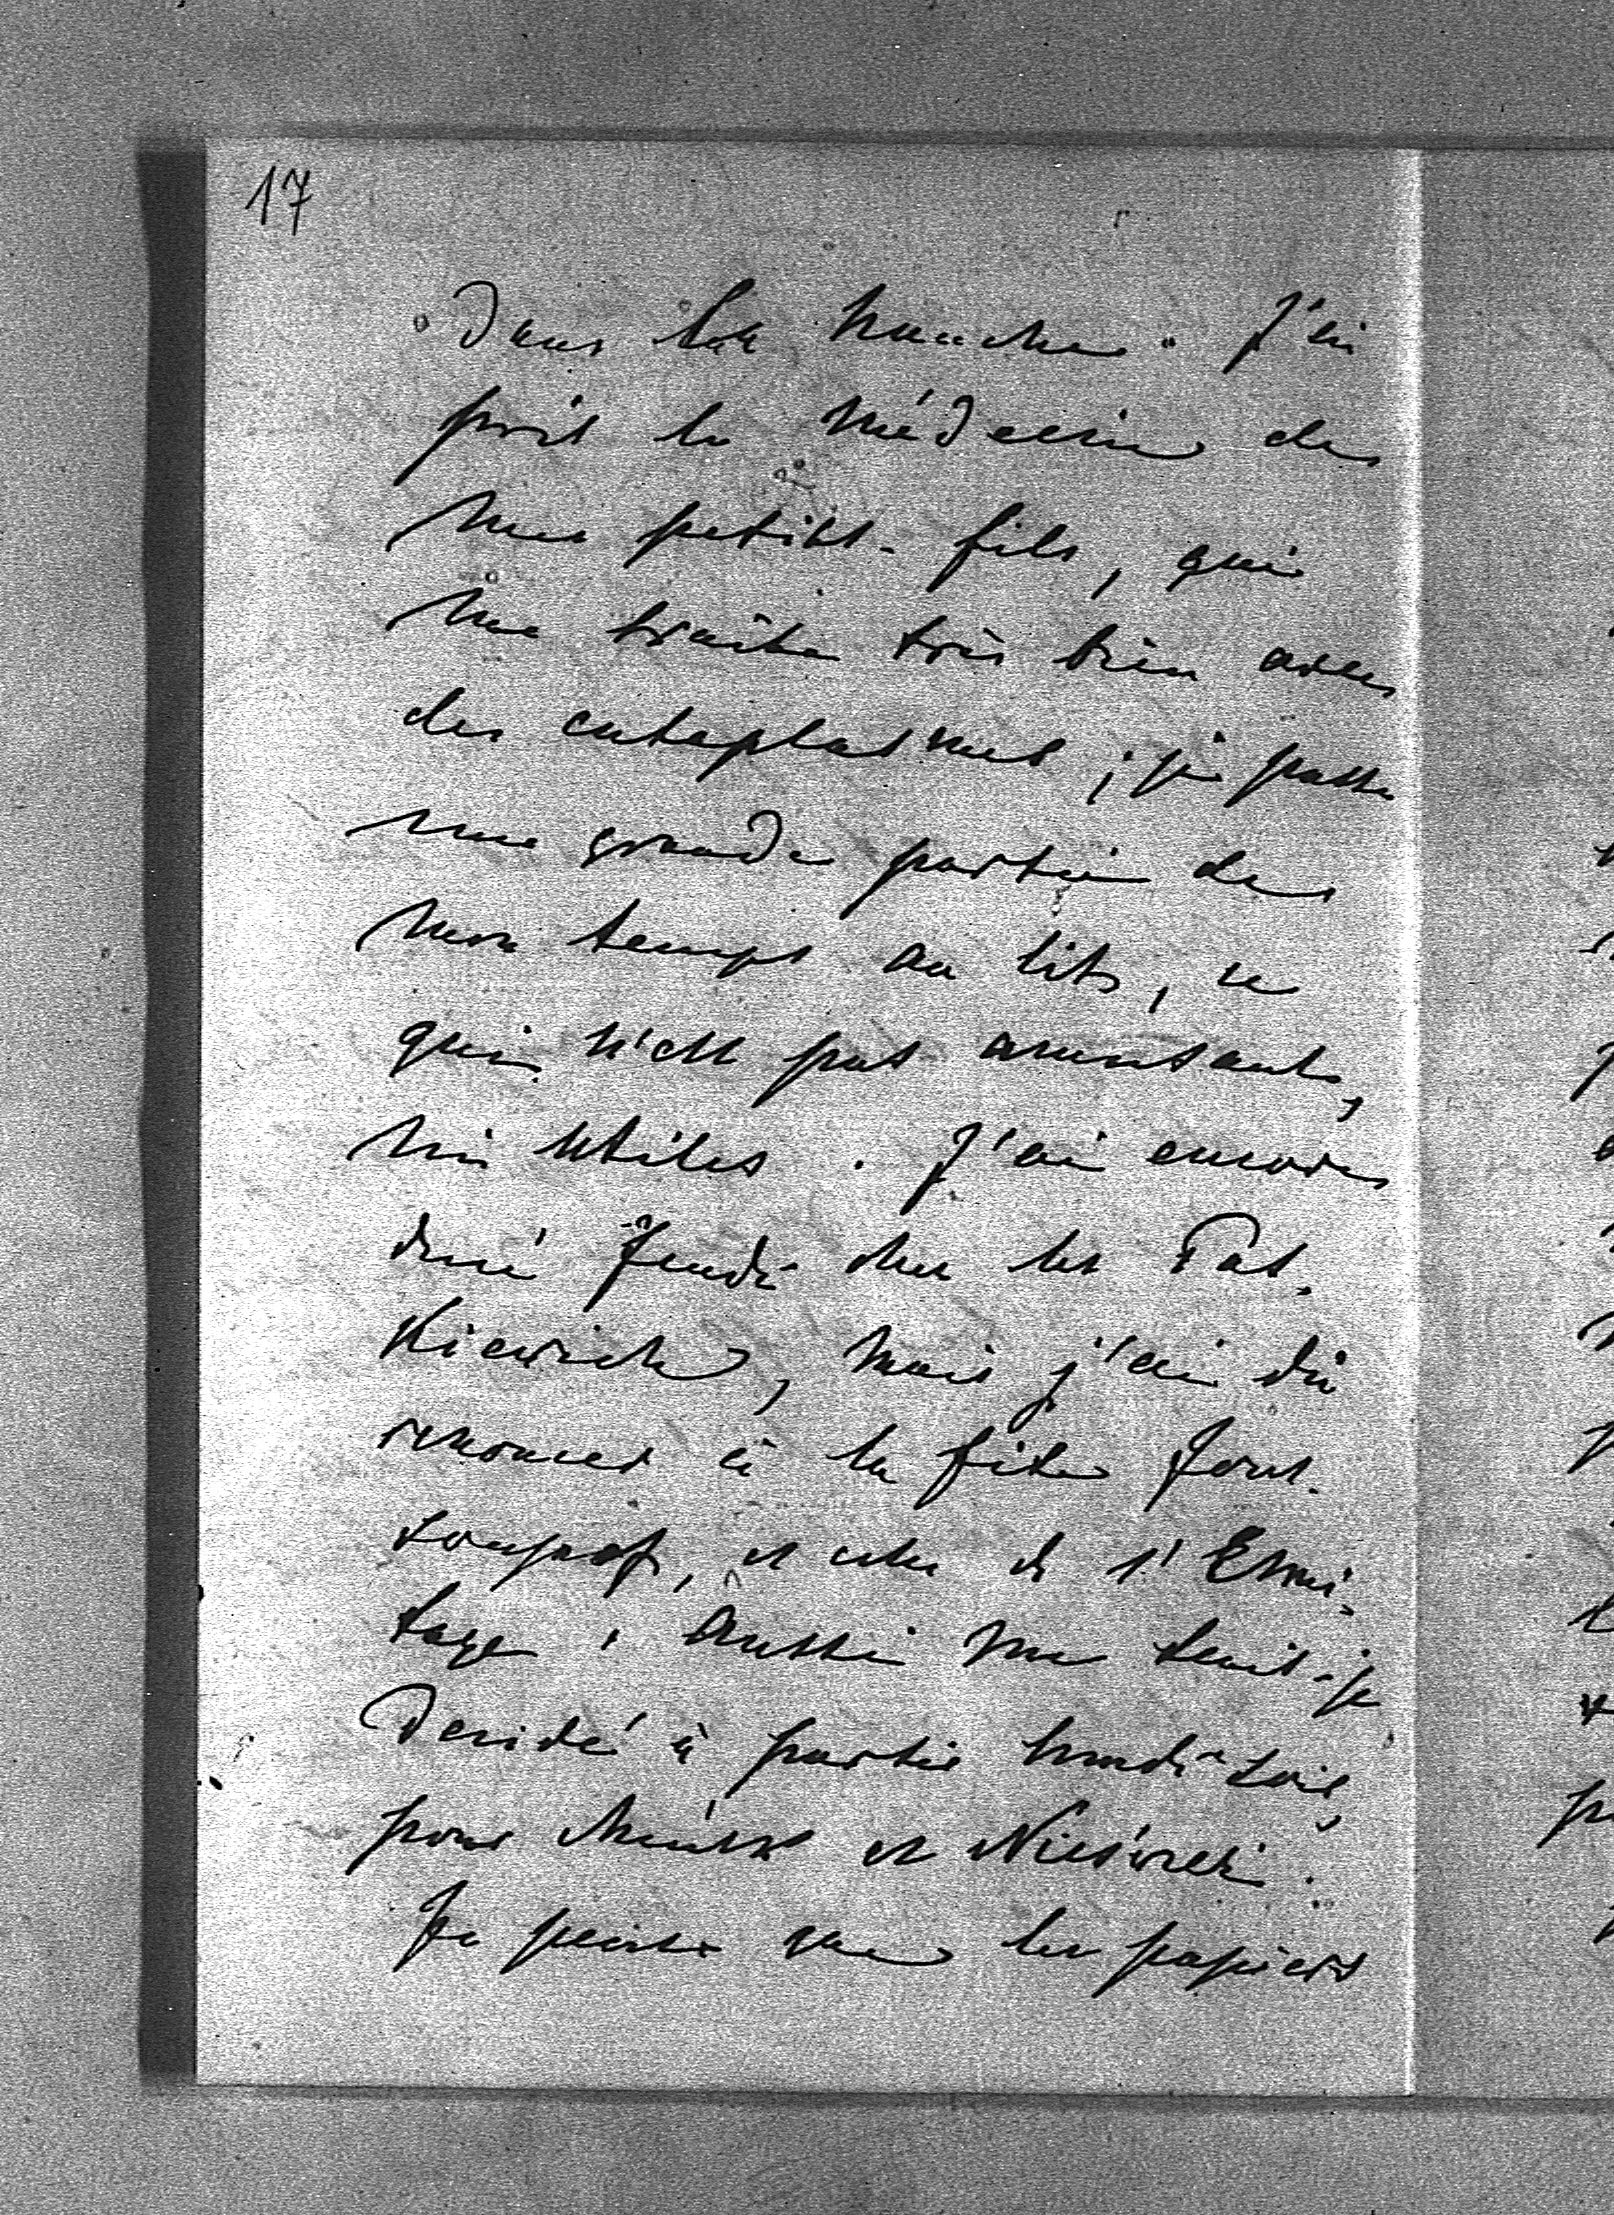 17
dans la hanche. J'ai
pris le médecin de
mes petits-fils, qui
me traite très bien avec
des cataplasmes ; je passe
une grande partie de
mon temps au lit, ce
qui n'est pas amusant,
ni utile. J'ai encore
diné Jeudi chez les Pas-
kiewich, mais j'ai dû
renoncer à la fête Jous-
soupof, et celle de l'Ermi-
tage. Aussi me suis-je
decidé à partir lundi soir,
pour et Nieswież.
Je pense que les papiers